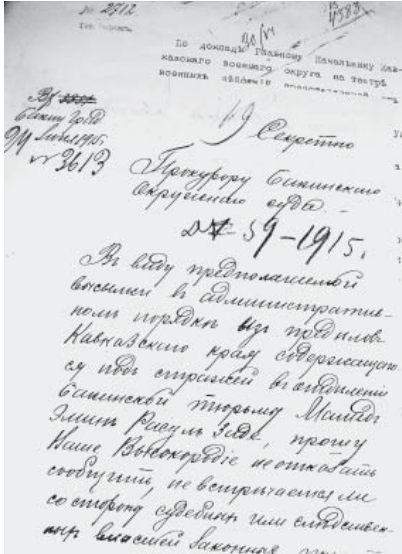 № 2712
4383
По докладѣ Главному Начальнику Кав-
казскаго военнаго округа на театрѣ
военныхъ
Баку
1915
№ 3613
49
Секретно
Прокурору Бакинскаго
Окружнаго суда.
59-1915.
Въ виду предполагаемой
высылки въ административ-
номъ порядкѣ изъ предѣловъ
Кавказскаго края содержащаго-
ся подъ стражей въ отдѣленіи
Бакинской тюрьмы Мамедъ
Эминъ Расулъ Заде, прошу
Ваше Высокородіе не отказать
сообщить, не встрѣчается ли
со стороны судебныхъ или слѣдствен-
ныхъ властей законныхъ